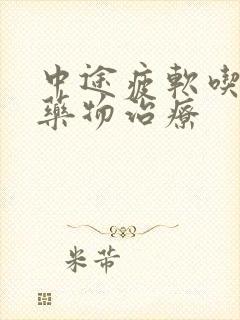 中途疲軟喫
藥物治療
米蒂